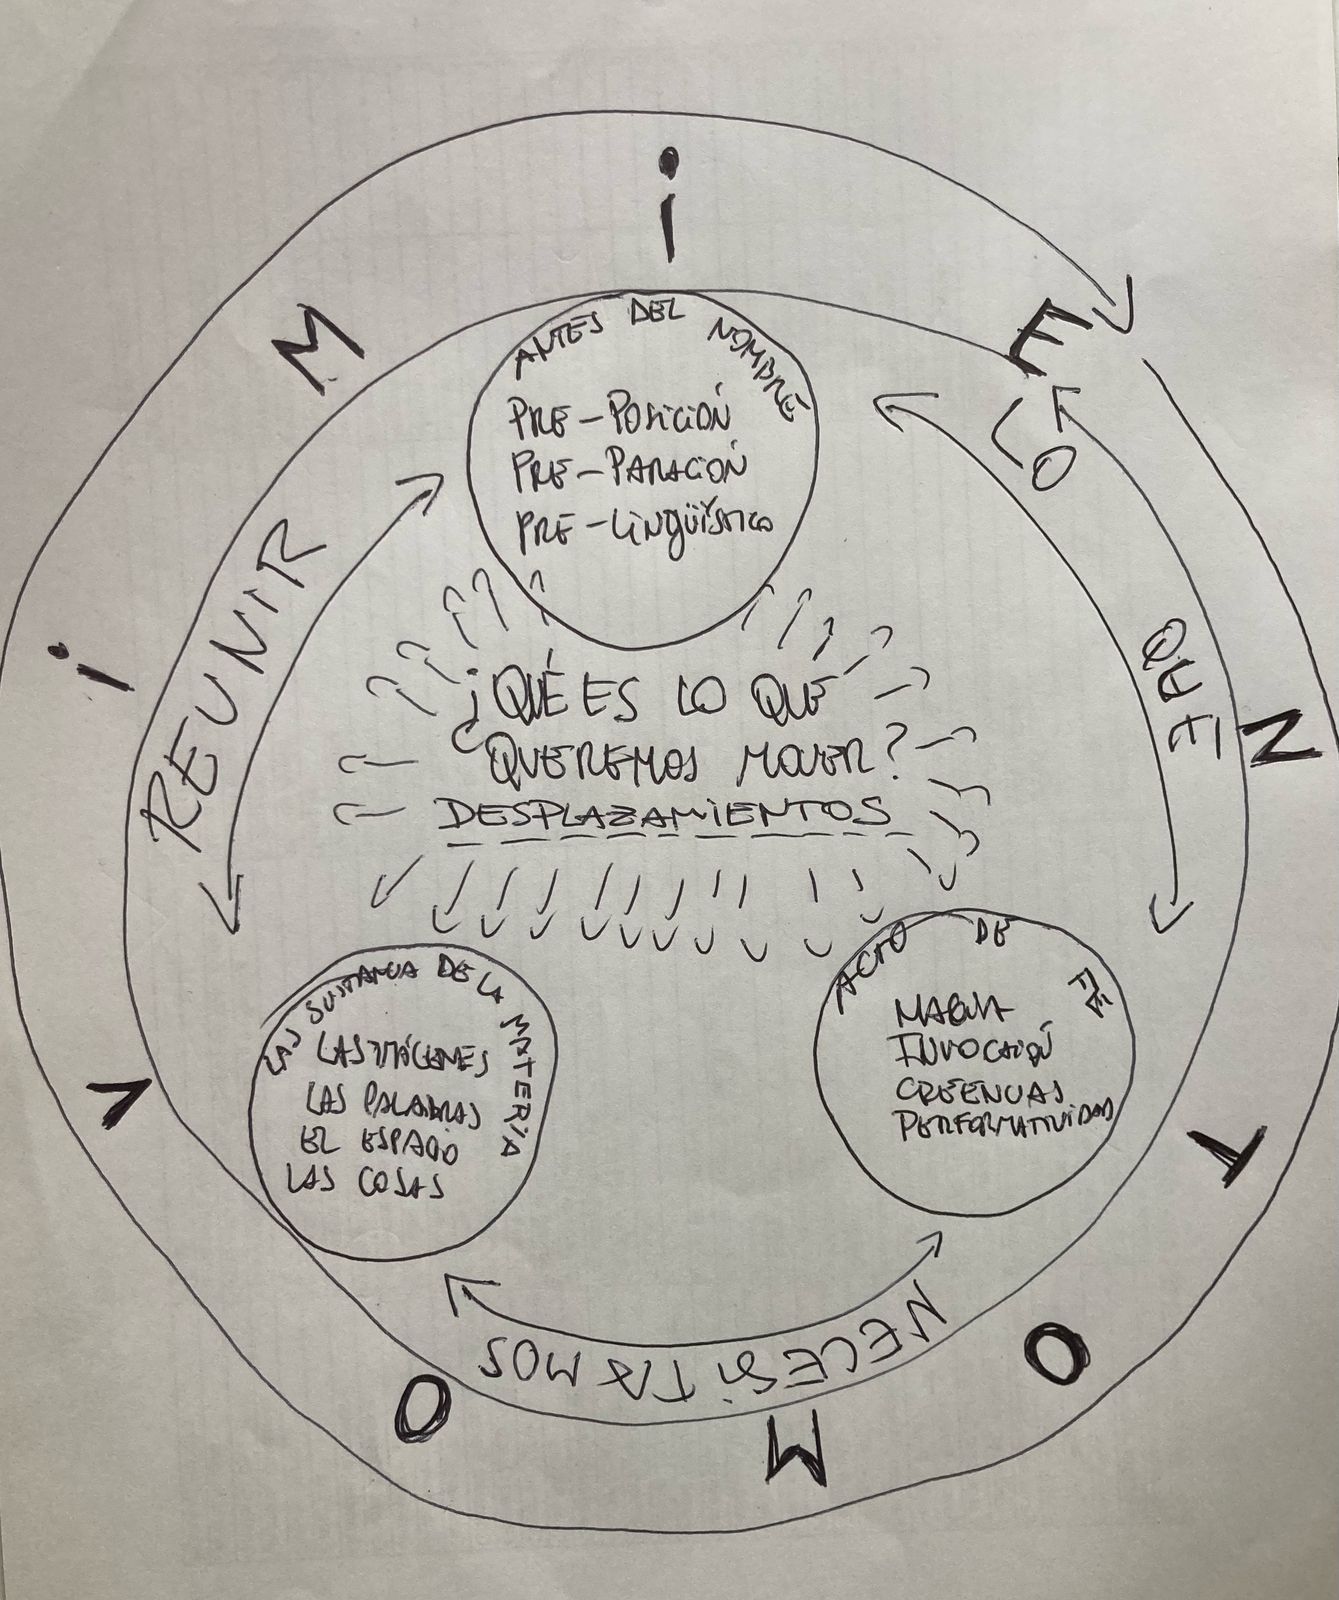 MOViMiENTO
REUNIR LO QUE NECESiTAMOS
ANTES DEL NOMBRE
PRE-POSiCiÓN
PRE-PARACiÓN
PRE-LiNGÜÍSTiCO
¿QUÉ ES LO QUE
QUEREMOS MOVER?
DESPLAZAMiENTOS
LAS SUSTANCiA DE LA MATERiA
LAS IMÁGENES
LAS PALABRAS
EL ESPACiO
LAS COSAS
ACTO DE FE
MAGIA
INVOCACiÓN
CREENCiAS
PERFORMATiViDAD